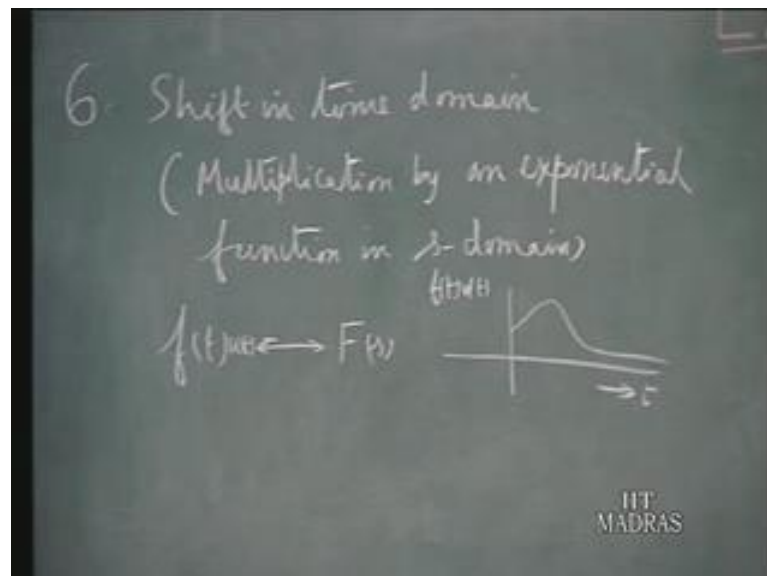 6. Shift in time domain
(Multiplication by an exponential
function in s-domain)
f(t)u(t)
f(t)u(t) ⟷ F(s)
→ t
IIT
MADRAS